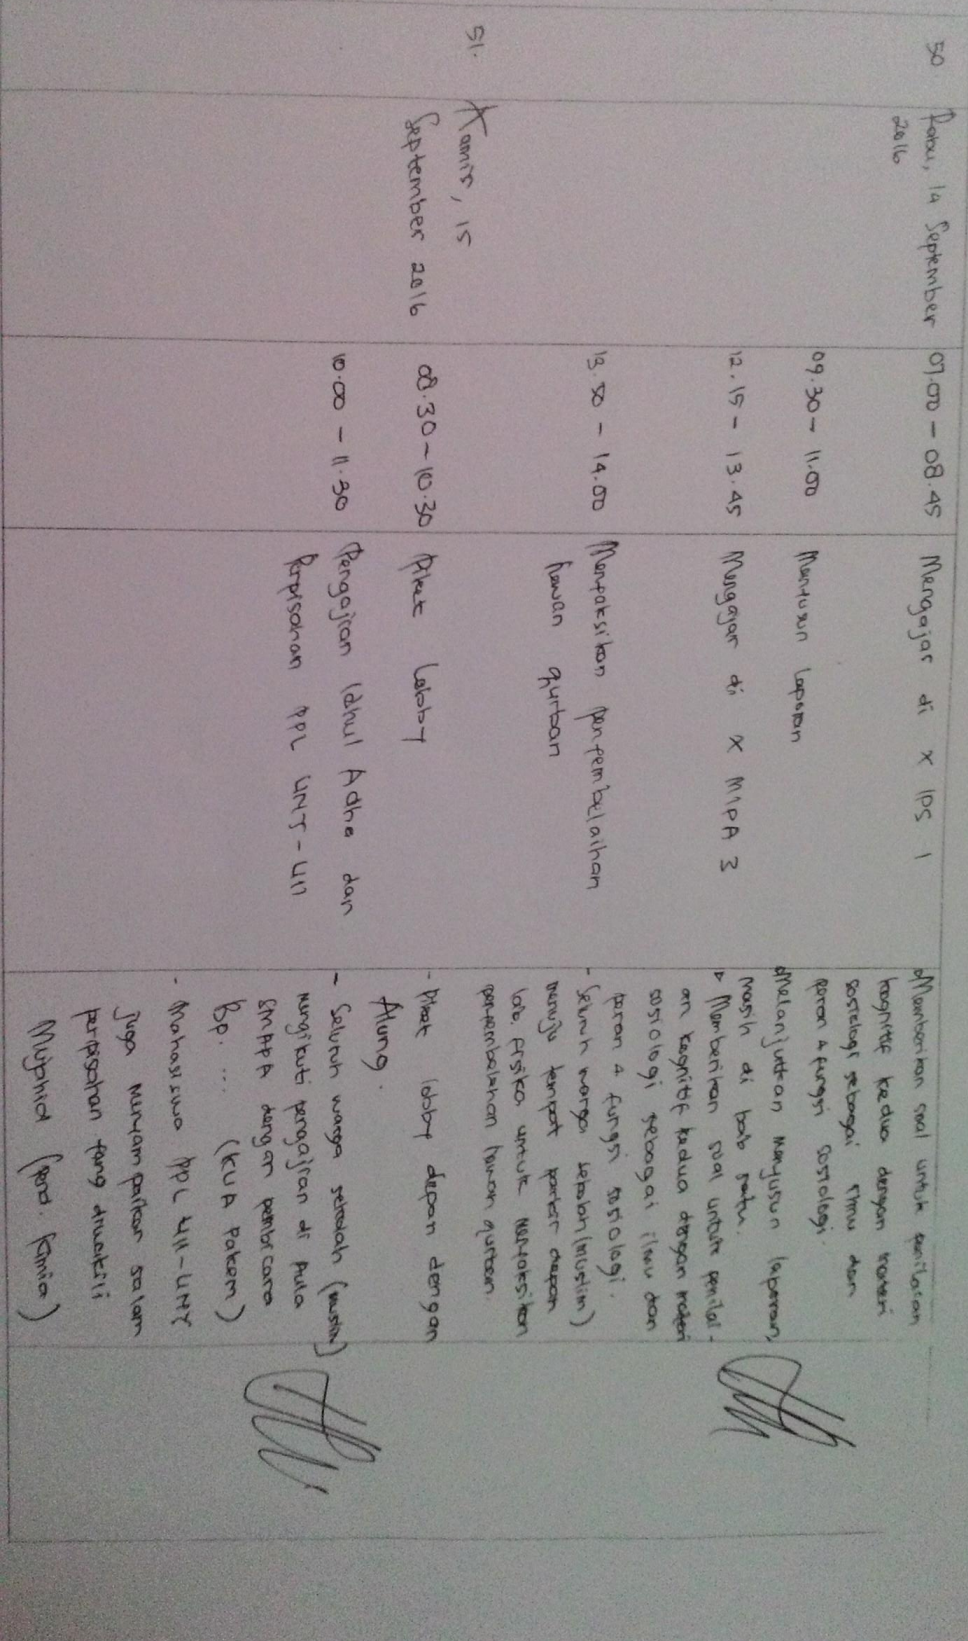 50
Rabu, 14 September
2016
07.00 - 08.45
Mengajar di X IPS 1
Memberikan soal untuk penilaian
kognitif kedua dengan materi
sosiologi sebagai ilmu dan
peran & fungsi sosiologi.
09.30 - 11.00
Menyusun laporan
Melanjutkan menyusun laporan,
masih di bab satu.
12.15 - 13.45
Mengajar di X MIPA 3
Memberikan soal untuk penilai-
an kognitif kedua dengan materi
sosiologi sebagai ilmu dan
peran & fungsi sosiologi.
13.50 - 14.00
Menyaksikan penyembelaihan
hewan qurban
- Seluruh warga sekolah (muslim)
menuju tempat parkir depan
lab. fisika untuk menyaksikan
penyembelihan hewan qurban.
51.
Kamis, 15
September 2016
08.30 - 10.30
Piket Lobby
- Piket lobby depan dengan
Alung.
10.00 - 11.30
Pengajian Idhul Adha dan
Perpisahan PPL UNY - UII
- Seluruh warga sekolah (muslim)
mengikuti pengajian di Aula
SMAPA dengan pembicara
Bp. .... (KUA Pakem)
- Mahasiswa PPL UII-UNY
juga menyampaikan salam
perpisahan yang diwakili
Mujahid (pend. kimia)